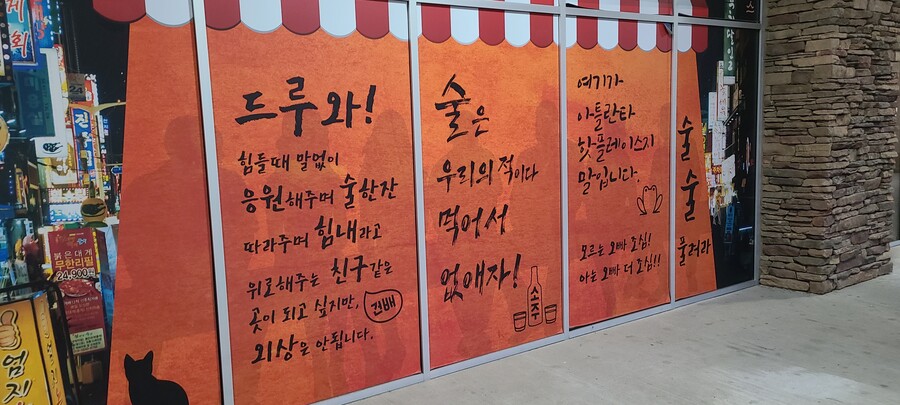 드루와!
힘들때 말없이
응원해주며 술한잔
따라주며 힘내라고
위로해주는 친구같은
곳이 되고 싶지만,
건배
외상은 안됩니다.
술은
우리의 적이다
먹어서
없애자!
소주
여기가
아틀란타
핫플레이스지
말입니다.
모르는 오빠 조심!
아는 오빠 더 조심!!
술
술
풀려라
붉은대게
무한리필
24,900원
엄지